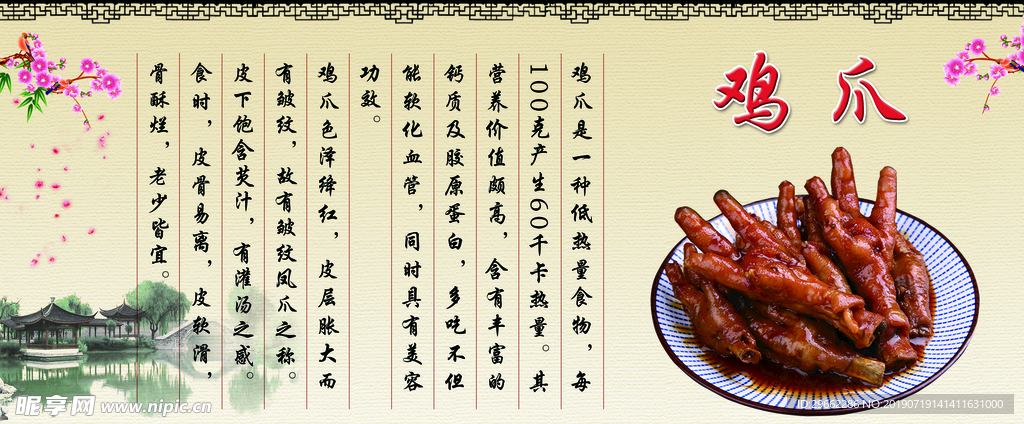 鸡爪
鸡爪是一种低热量食物，每
100克产生60千卡热量。其
营养价值颇高，含有丰富的
钙质及胶原蛋白，多吃不但
能软化血管，同时具有美容
功效。
鸡爪色泽绛红，皮层胀大而
有皱纹，故有皱纹凤爪之称。
皮下饱含芡汁，有灌汤之感。
食时，皮骨易离，皮软滑，
骨酥烂，老少皆宜。
昵享网 www.nipic.cn
ID:29662286 NO:20190719141411631000